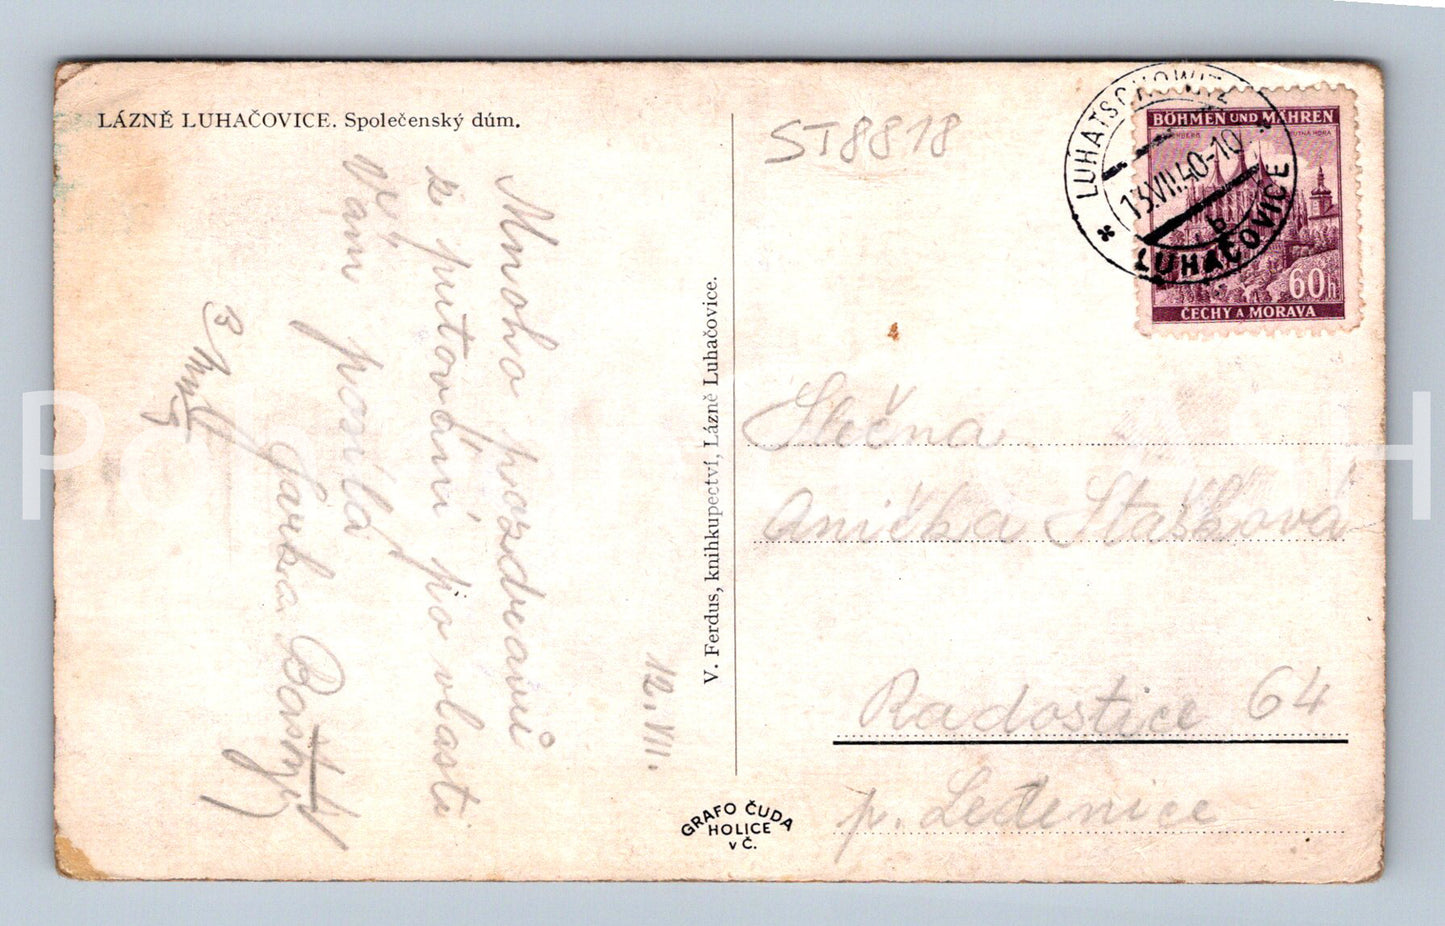 LÁZNĚ LUHAČOVICE. Společenský dům.
Mnoho pozdravů
z putování po vlasti
Vám posílá
Jarka
12. VII.
V. Ferdus, knihkupectví, Lázně Luhačovice.
GRAFO ČUDA
HOLICE
v Č.
ST8818
LUHATSCHOWITZ
13.VII.40-10
b
LUHAČOVICE
BÖHMEN UND MÄHREN
60h
ČECHY A MORAVA
Slečna
Anička Stašková
Radostice 64
p. Ledenice